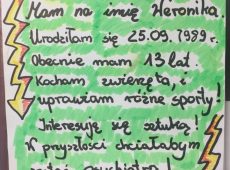 Mam na imię Weronika.
Urodziłam się 25.09.1989 r.
Obecnie mam 13 lat.
Kocham zwierzęta, i
uprawiam różne sporty!
Interesuję się sztuką!
W przyszłości chciałabym
zostać psychiatrą!